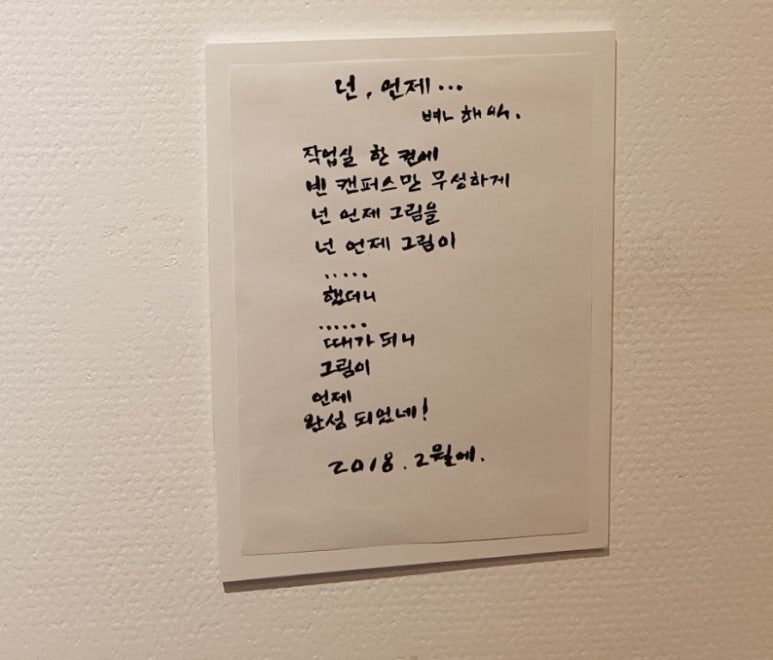 넌, 언제...
작업실 한 켠에
빈 캔퍼스만 무성하게
넌 언제 그림을
넌 언제 그림이
.....
했더니
......
때가 되니
그림이
언제
완성 되었네!
2018. 2월에.